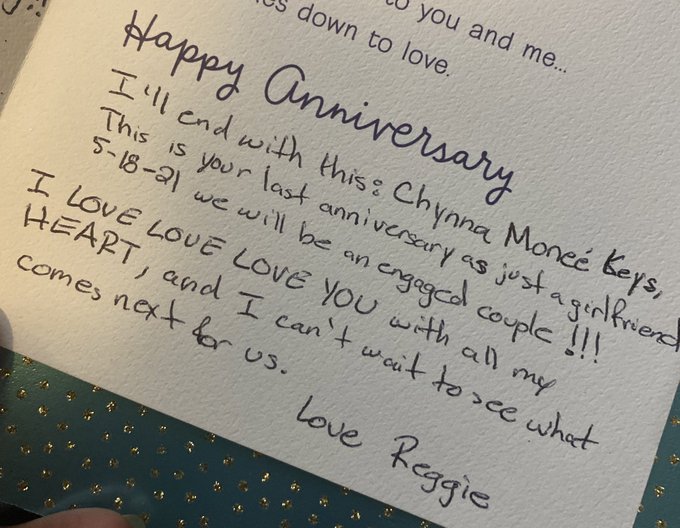 to you and me...
es down to love.
Happy Anniversary
I'll end with this: Chynna Moneé Keys,
This is your last anniversary as just a girlfriend
5-18-21 we will be an engaged couple!!!
I LOVE LOVE LOVE YOU with all my
HEART, and I can't wait to see what
comes next for us.
Love Reggie